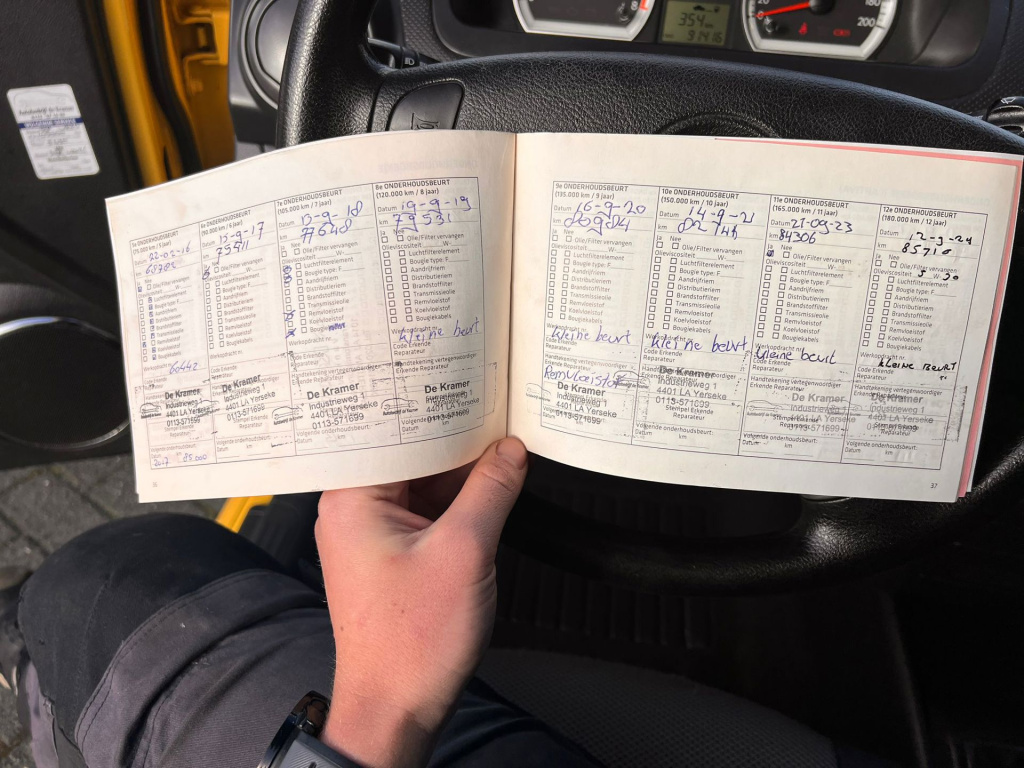 8
354
km
91416
20
0
180
200
Autobedrijf de Kramer
5e ONDERHOUDSBEURT
(75.000 km / 5 jaar)
Datum 22-02-16
km
Ja Nee
Olie/Filter vervangen
Olieviscositeit W-
Luchtfilterelement
Bougie type: F
Aandrijfriem
Distributieriem
Brandstoffilter
Transmissieolie
Remvloeistof
Koelvloeistof
Bougiekabels
Werkopdracht nr.
60442
De Kramer
Industrieweg 1
4401 LA Yerseke
0113-571699
Reparateur
Volgende onderhoudsbeurt:
Datum km
2017 85.000
36
6e ONDERHOUDSBEURT
(90.000 km / 6 jaar)
Datum 15-9-17
km 75911
Ja Nee
Olie/Filter vervangen
Olieviscositeit W-
Werkopdracht nr.
Code Erkende
Reparateur
7e ONDERHOUDSBEURT
(105.000 km / 7 jaar)
Datum 13-9-18
km 77648
Ja Nee
Olie/Filter vervangen
Olieviscositeit W-
Luchtfilterelement
Bougie type: F
Aandrijfriem
Distributieriem
Brandstoffilter
Transmissieolie
Remvloeistof
Koelvloeistof
Bougiekabels
Werkopdracht nr.
Code Erkende
Reparateur
De Kramer
Industrieweg 1
4401 LA Yerseke
0113-571699
Volgende onderhoudsbeurt:
Datum km
8e ONDERHOUDSBEURT
(120.000 km / 8 jaar)
Datum 19-9-19
km 79531
Ja Nee
Olie/Filter vervangen
Olieviscositeit W-
Luchtfilterelement
Bougie type: F
Aandrijfriem
Distributieriem
Brandstoffilter
Transmissieolie
Remvloeistof
Koelvloeistof
Bougiekabels
Werkopdracht nr.
kleine beurt
Code Erkende
Reparateur
Handtekening vertegenwoordiger
Erkende Reparateur
De Kramer
Industrieweg 1
4401 LA Yerseke
0113-571699
Volgende onderhoudsbeurt:
Datum km
9e ONDERHOUDSBEURT
(135.000 km / 9 jaar)
Datum 16-9-20
km 80984
Ja Nee
Olie/Filter vervangen
Olieviscositeit W-
Luchtfilterelement
Bougie type: F
Aandrijfriem
Distributieriem
Brandstoffilter
Transmissieolie
Remvloeistof
Koelvloeistof
Bougiekabels
Werkopdracht nr.
kleine beurt
Code Erkende
Reparateur
Handtekening vertegenwoordiger
Remvloeistof
De Kramer
Industrieweg 1
4401 LA Yerseke
0113-571699
Volgende onderhoudsbeurt:
Datum km
10e ONDERHOUDSBEURT
(150.000 km / 10 jaar)
Datum 14-9-21
km
Ja Nee
Olie/Filter vervangen
Olieviscositeit W-
Luchtfilterelement
Bougie type: F
Aandrijfriem
Distributieriem
Brandstoffilter
Transmissieolie
Remvloeistof
Koelvloeistof
Bougiekabels
Werkopdracht nr.
kleine beurt
Code Erkende
Reparateur
Handtekening vertegenwoordiger
De Kramer
Industrieweg 1
4401 LA Yerseke
0113-571699
Stempel Erkende
Reparateur
Volgende onderhoudsbeurt:
Datum km
11e ONDERHOUDSBEURT
(165.000 km / 11 jaar)
Datum 21-09-23
km 84306
Ja Nee
Olie/Filter vervangen
Olieviscositeit W-
Luchtfilterelement
Bougie type: F
Aandrijfriem
Distributieriem
Brandstoffilter
Transmissieolie
Remvloeistof
Koelvloeistof
Bougiekabels
Werkopdracht nr.
kleine beurt
Code Erkende
Reparateur
Handtekening vertegenwoordiger
Erkende Reparateur
De Kramer
Industrieweg 1
4401 LA Yerseke
0113-571699
Stempel Erkende
Reparateur
Volgende onderhoudsbeurt:
Datum km
12e ONDERHOUDSBEURT
(180.000 km / 12 jaar)
Datum 12-9-24
km 85710
Ja Nee
Olie/Filter vervangen
Olieviscositeit 5 W- 30
Luchtfilterelement
Bougie type: F
Aandrijfriem
Distributieriem
Brandstoffilter
Transmissieolie
Remvloeistof
Koelvloeistof
Bougiekabels
Werkopdracht nr.
KLEINE BEURT
Code Erkende
Reparateur
Handtekening vertegenwoordiger
Erkende Reparateur
De Kramer
Industrieweg 1
4401 LA Yerseke
0113-571699
Reparateur
Volgende onderhoudsbeurt:
Datum km
37